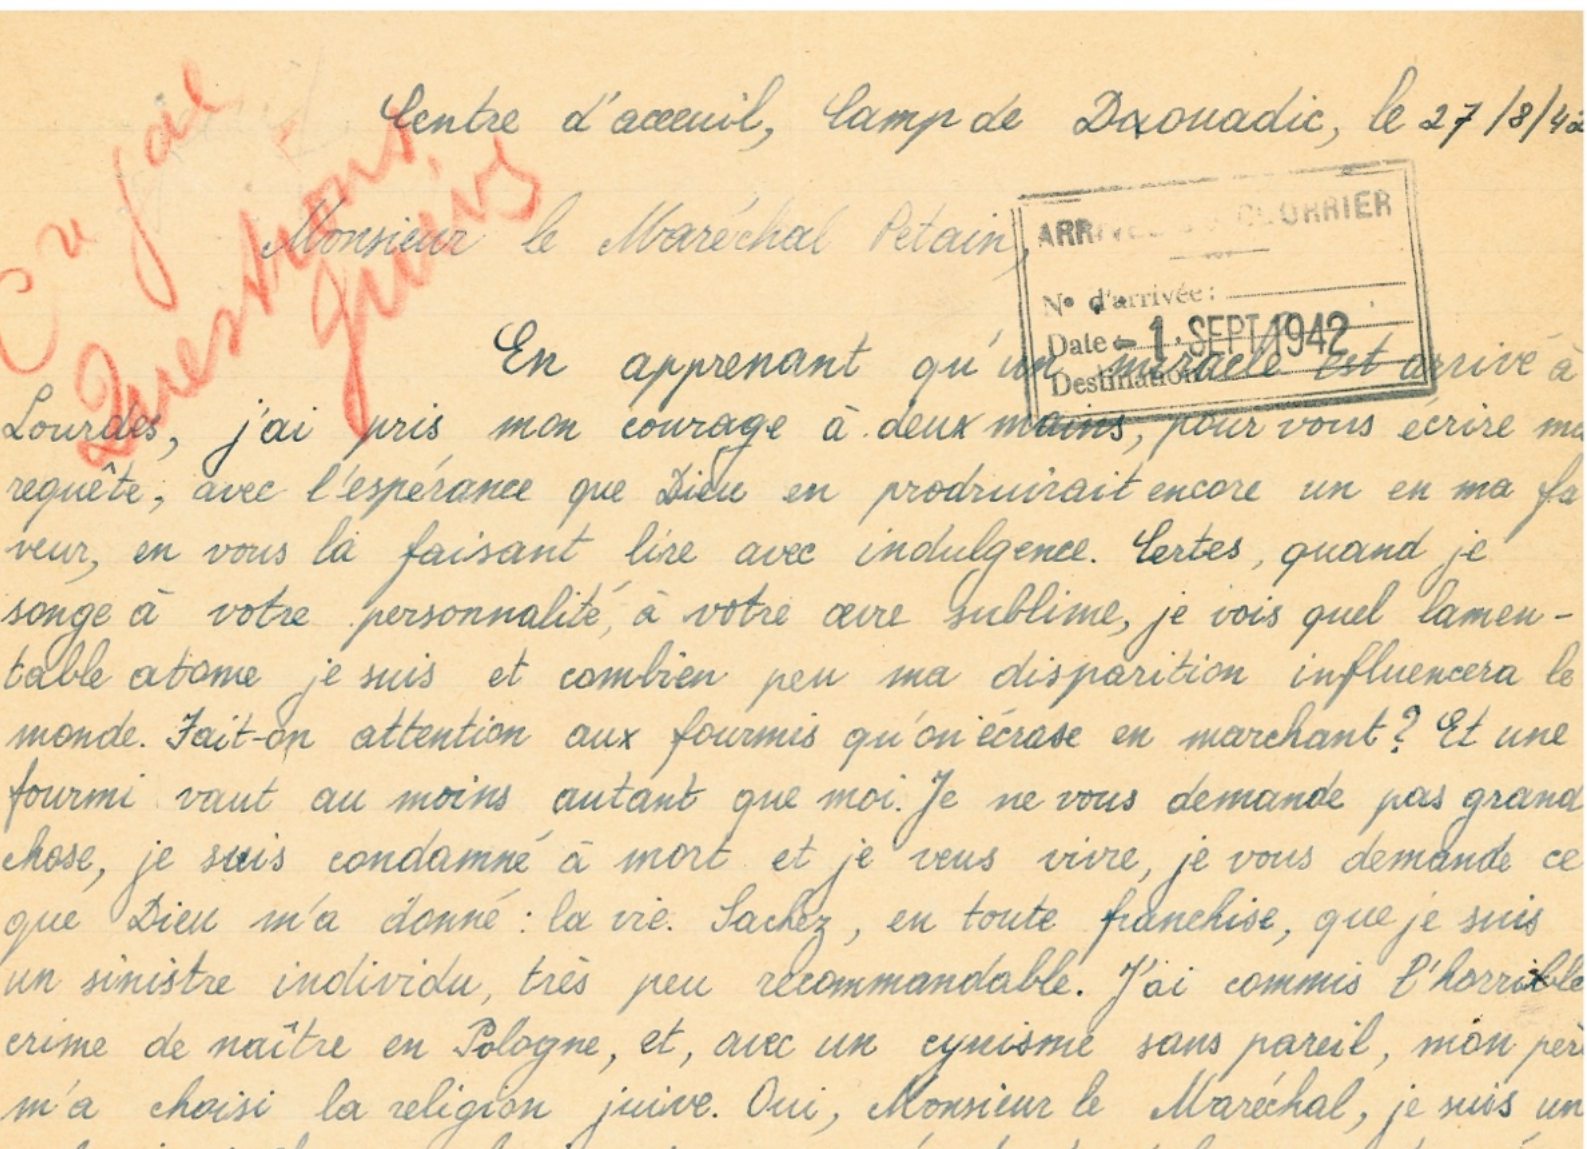 Cv jal
Questions
juives
Centre d'acceuil, Camp de Daouadic, le 27/8/42
Monsieur le Maréchal Petain,
ARRIVÉE DU COURRIER
N° d'arrivée :
Date 1. SEPT 1942
Destination
En apprenant qu'un miracle est arrivé à
Lourdes, j'ai pris mon courage à deux mains, pour vous écrire ma
requête, avec l'espérance que Dieu en prodruirait encore un en ma fa
veur, en vous la faisant lire avec indulgence. Certes, quand je
songe à votre personnalité, à votre œvre sublime, je vois quel lamen-
table atome je suis et combien peu ma disparition influencera le
monde. Fait-on attention aux fourmis qu'on écrase en marchant ? Et une
fourmi vaut au moins autant que moi. Je ne vous demande pas grand
chose, je suis condamné à mort et je veus vivre, je vous demande ce
que Dieu m'a donné : la vie. Sachez, en toute franchise, que je suis
un sinistre individu, très peu recommandable. J'ai commis l'horrible
crime de naître en Pologne, et, avec un cynisme sans pareil, mon père
m'a choisi la religion juive. Oui, Monsieur le Maréchal, je suis un